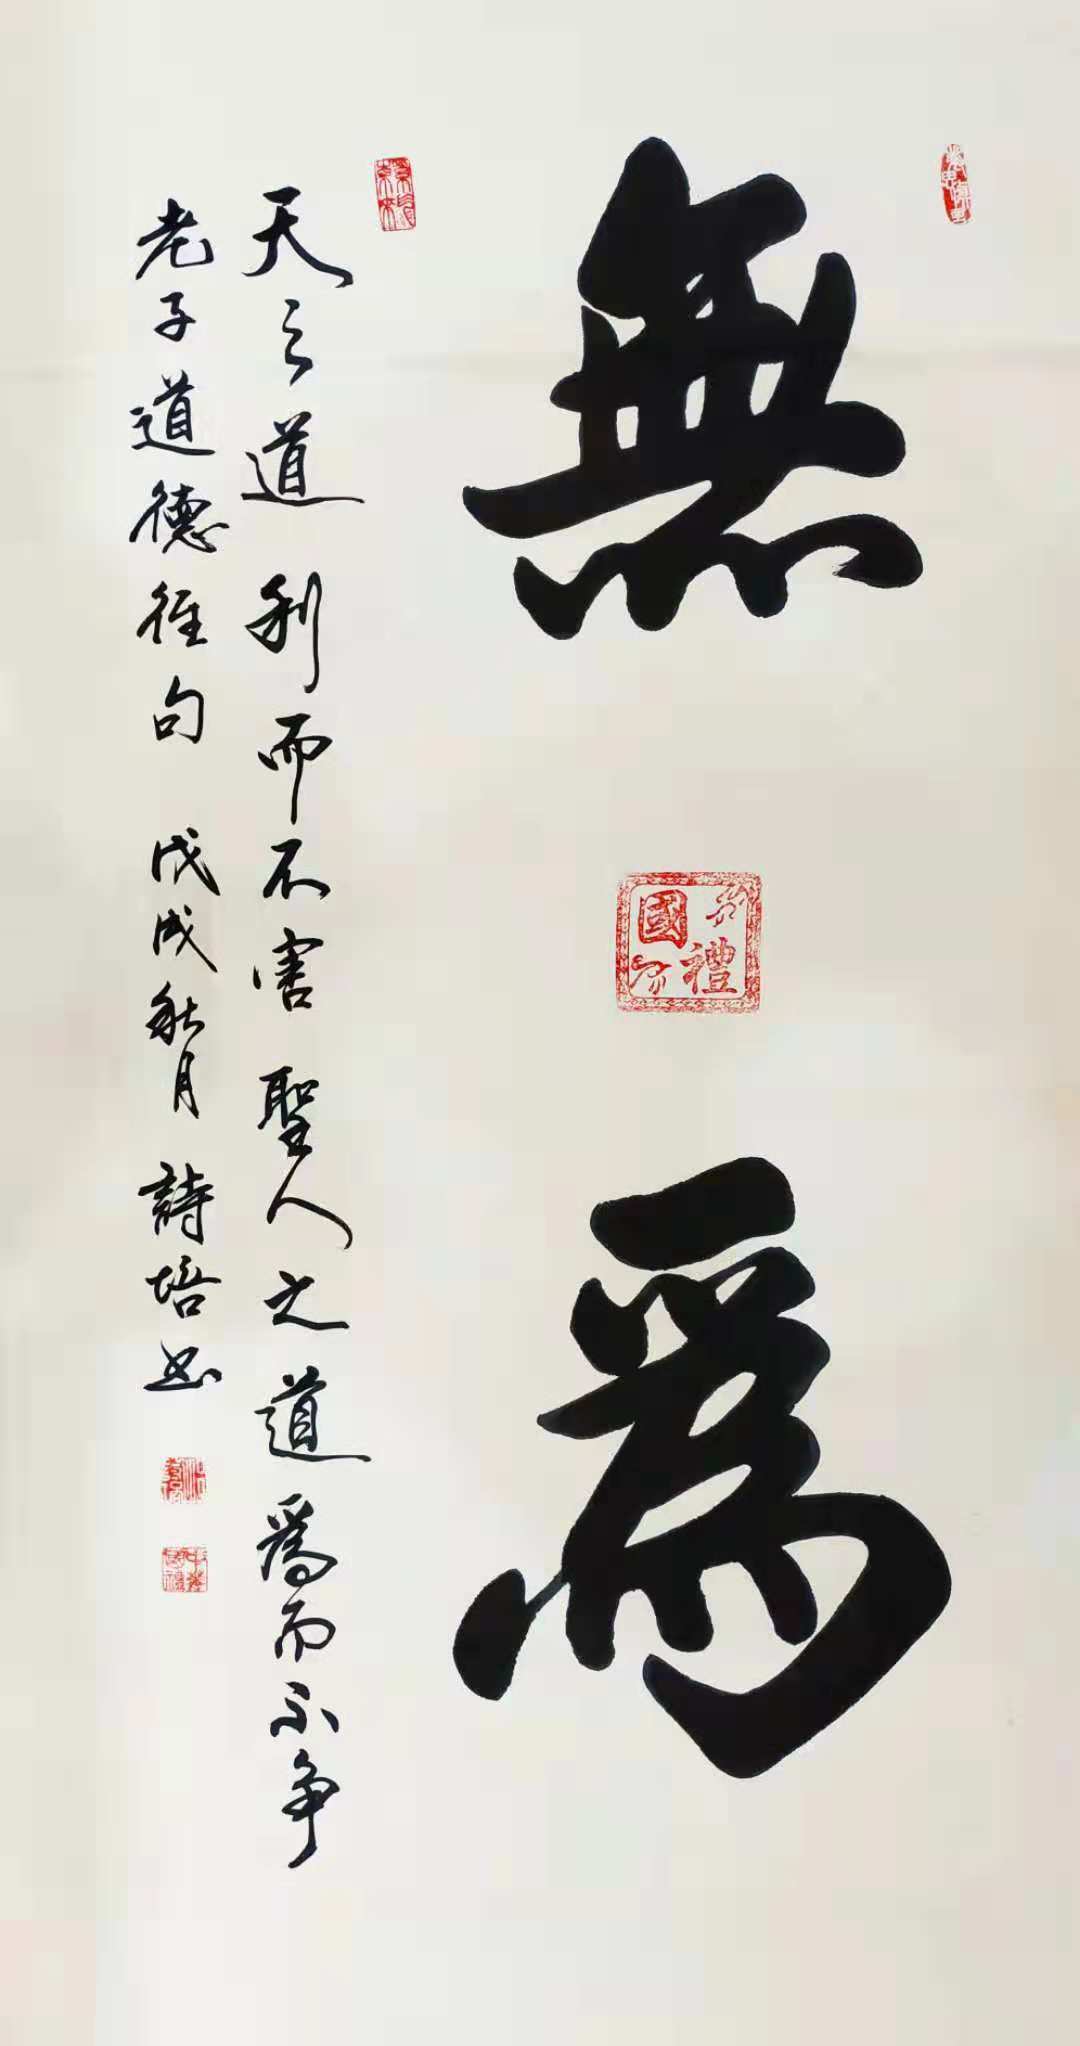 無爲
天之道利而不害聖人之道爲而不争
老子道德經句 戊戌秋月 詩培书
國禮